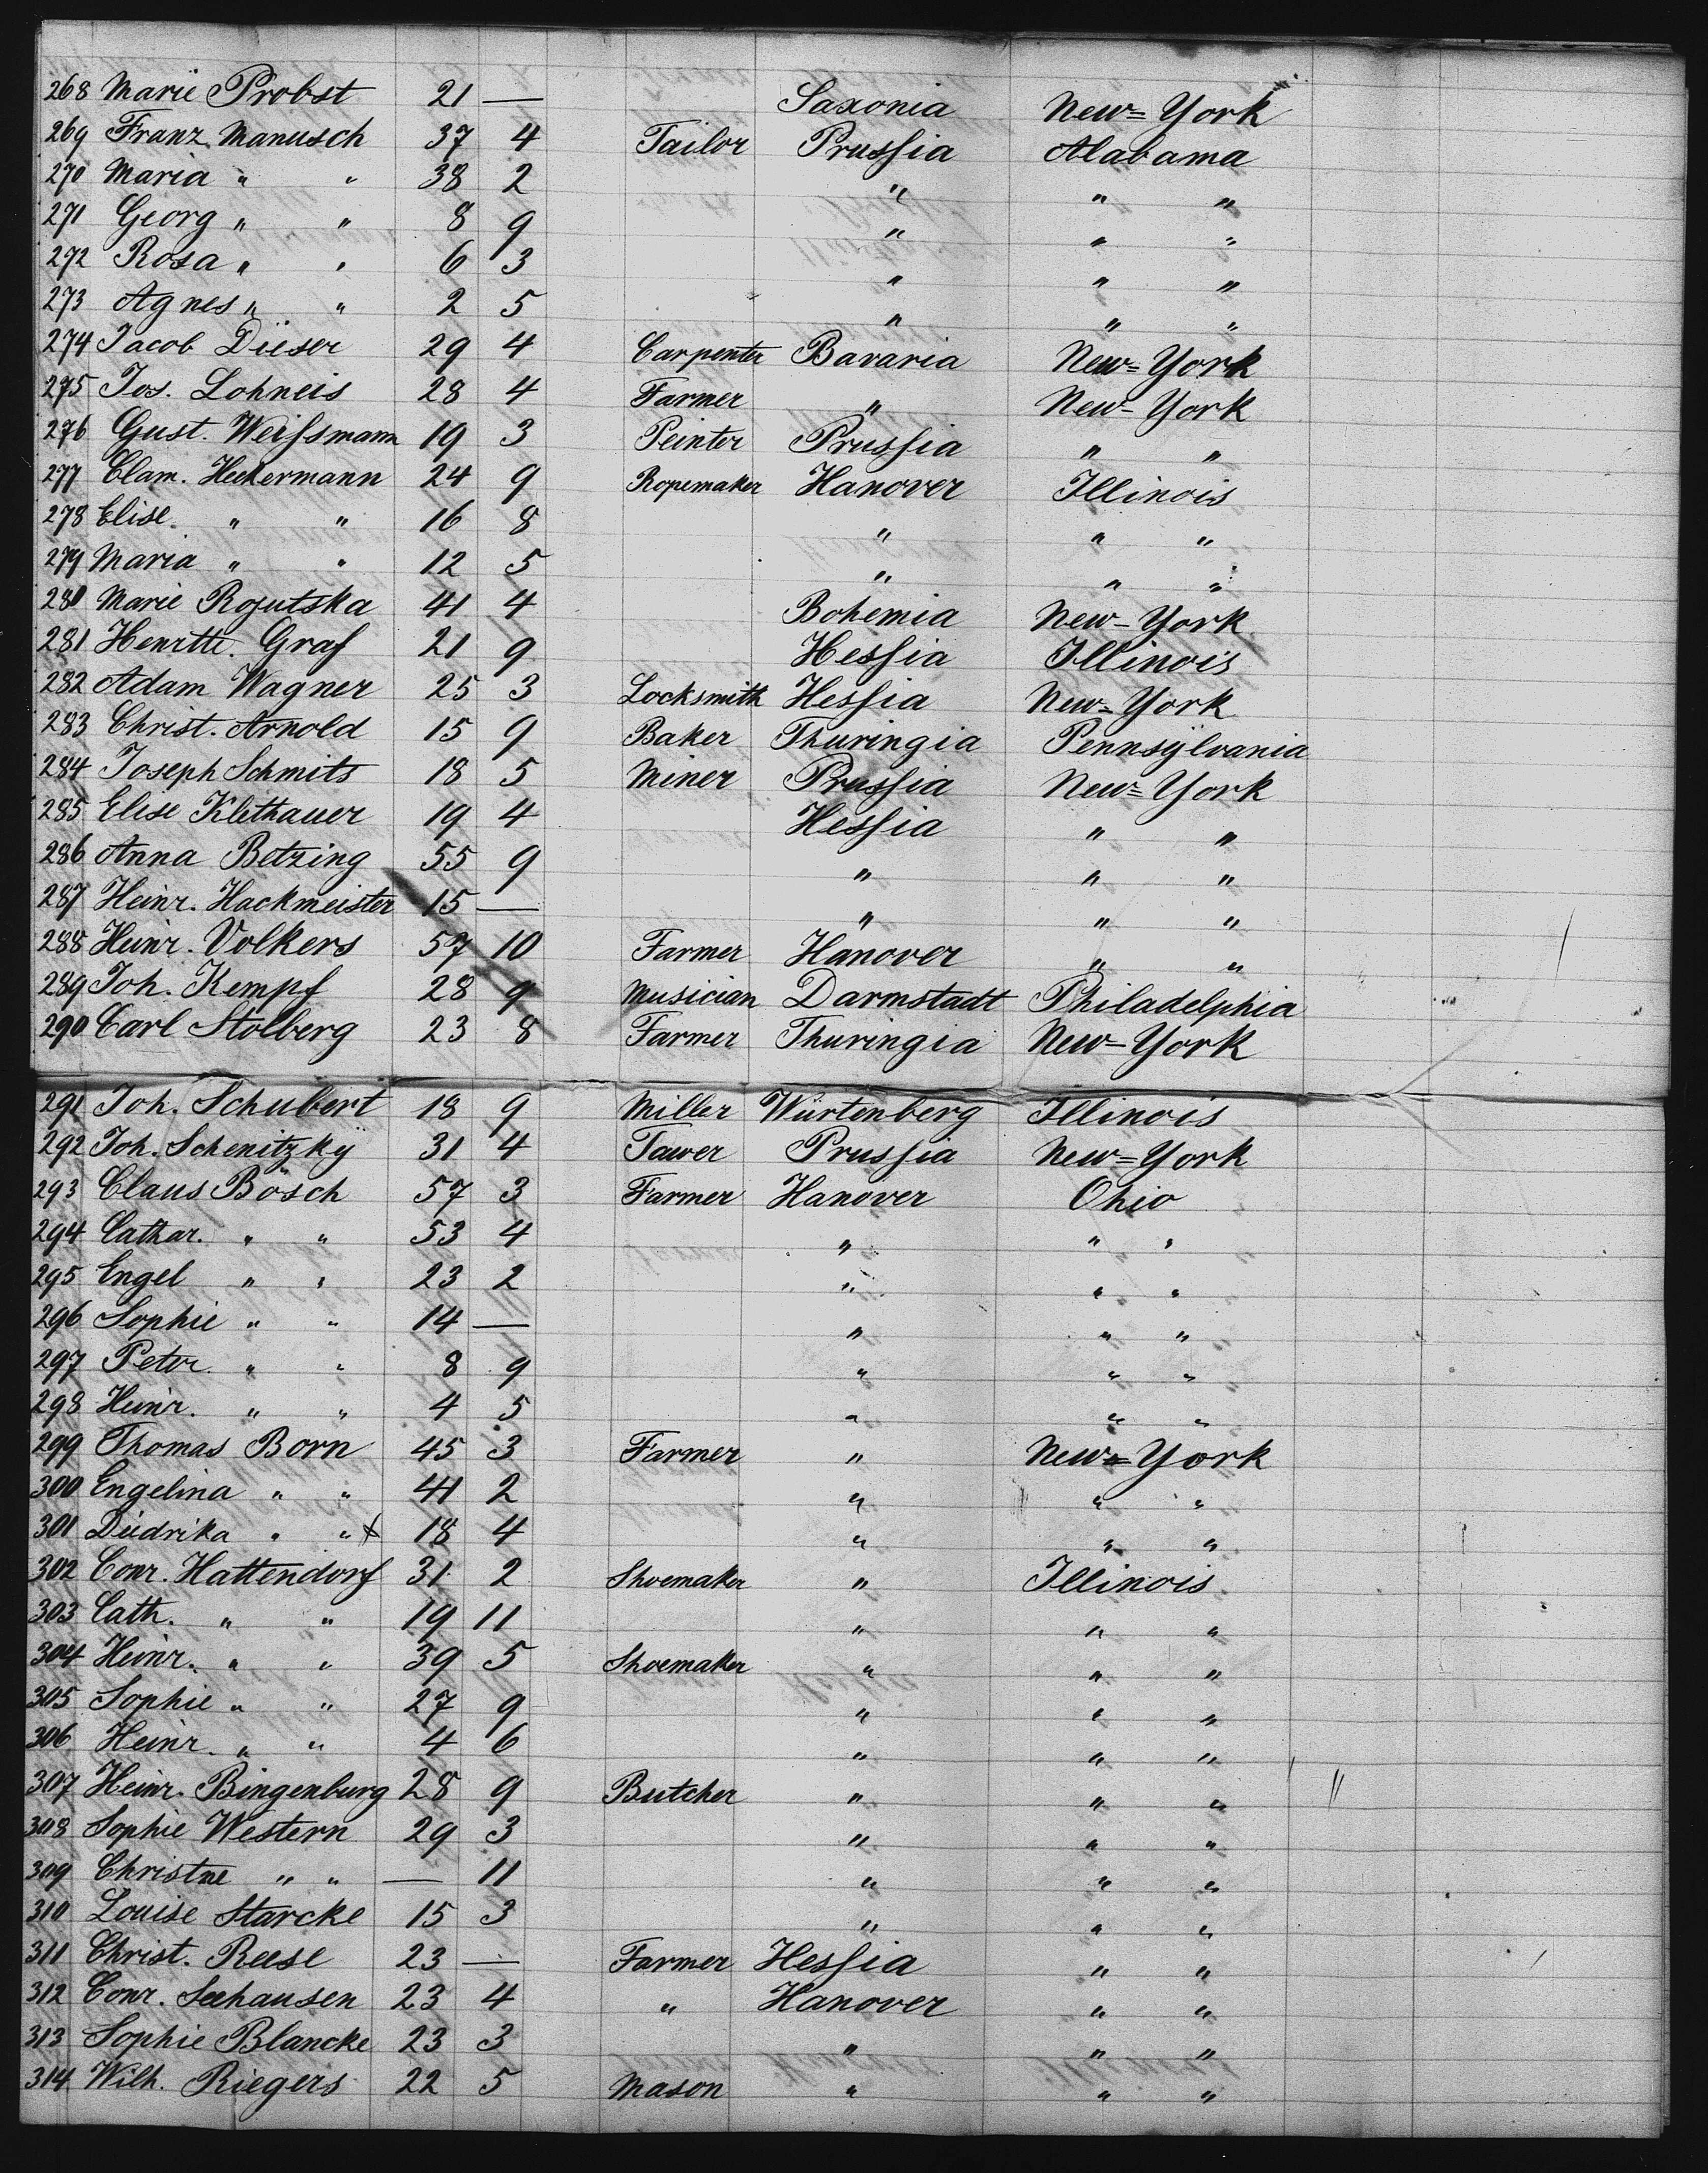 268 Marie Probst 21 — Saxonia New=York
269 Franz Manusch 37 4 Tailor Prussia Alabama
270 Maria " " 38 2 " " "
271 Georg " " 8 9 " " "
272 Rosa " " 6 3 " " "
273 Agnes " " 2 5 " " "
274 Jacob Düeser 29 4 Carpenter Bavaria New=York
275 Jos. Lohneis 28 4 Farmer " New-York
276 Gust. Weissmann 19 3 Peinter Prussia " "
277 Clam. Heckermann 24 9 Ropemaker Hanover Illinois
278 Elise. " " 16 8 " " "
279 Maria " " 12 5 " " "
280 Marie Rojutska 41 4 Bohemia New-York
281 Henrtte. Graf 21 9 Hessia Illinois
282 Adam Wagner 25 3 Locksmith Hessia New=York
283 Christ. Arnold 15 9 Baker Thuringia Pennsÿlvania
284 Joseph Schmits 18 5 Miner Prussia New=York
285 Elise Klithauer 19 4 Hessia " "
286 Anna Betzing 55 9 " " "
287 Heinr. Hackmeister 15 — " " "
288 Heinr. Volkers 57 10 Farmer Hanover " "
289 Joh. Kempf 28 9 Musician Darmstadt Philadelphia
290 Carl Stolberg 23 8 Farmer Thuringia New-York
291 Joh. Schubert 18 9 Miller Würtenberg Illinois
292 Joh. Schenitzkÿ 31 4 Tawer Prussia New=York
293 Claus Bösch 57 3 Farmer Hanover Ohio
294 Cathar. " " 53 4 " " "
295 Engel " " 23 2 " " "
296 Sophie " " 14 — " " "
297 Peter. " " 8 9 " " "
298 Heinr. " " 4 5 " " "
299 Thomas Born 45 3 Farmer " New=York
300 Engelina " " 41 2 " " "
301 Diedrika " " 18 4 " " "
302 Conr. Hattendorf 31 2 Shoemaker " Illinois
303 Cath. " " 19 11 " " "
304 Heinr. " " 39 5 Shoemaker " " "
305 Sophie " " 27 9 " " "
306 Heinr. " " 4 6 " " "
307 Heinr. Bingenburg 28 9 Butcher " " "
308 Sophie Western 29 3 " " "
309 Christne " " — 11 " " "
310 Louise Starcke 15 3 " " "
311 Christ. Reese 23 — Farmer Hessia " "
312 Conr. Seehausen 23 4 " Hanover " "
313 Sophie Blancke 23 3 " " "
314 Wilh. Riegers 22 5 Mason " " "